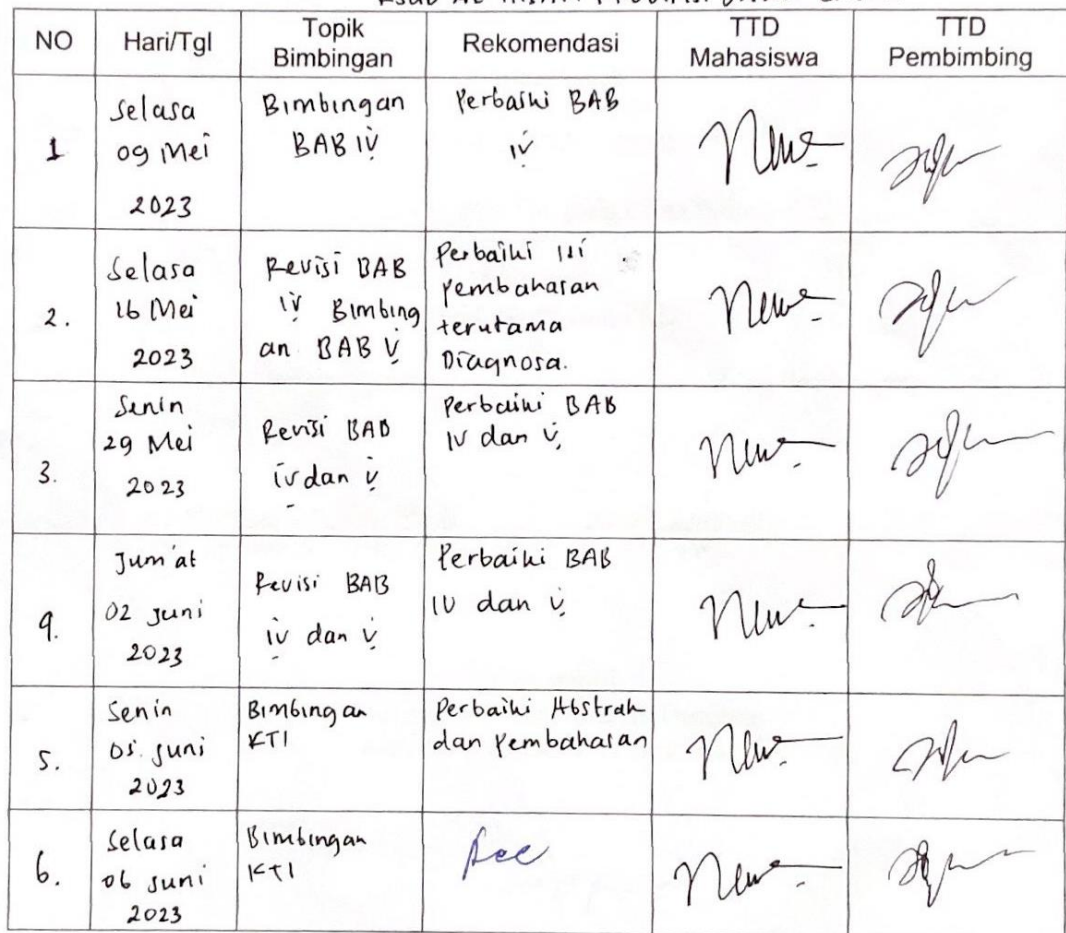 NO Hari/Tgl Topik Bimbingan Rekomendasi TTD Mahasiswa TTD Pembimbing
1 Selasa 09 Mei 2023 Bimbingan BAB IV Perbaiki BAB IV
2. Selasa 16 Mei 2023 Revisi BAB IV Bimbingan BAB V Perbaiki isi pembahasan terutama Diagnosa.
3. Senin 29 Mei 2023 Revisi BAB IV dan V Perbaiki BAB IV dan V
4. Jum'at 02 Juni 2023 Revisi BAB IV dan V Perbaiki BAB IV dan V
5. Senin 05 Juni 2023 Bimbingan KTI Perbaiki Abstrak dan pembahasan
6. Selasa 06 Juni 2023 Bimbingan KTI Acc